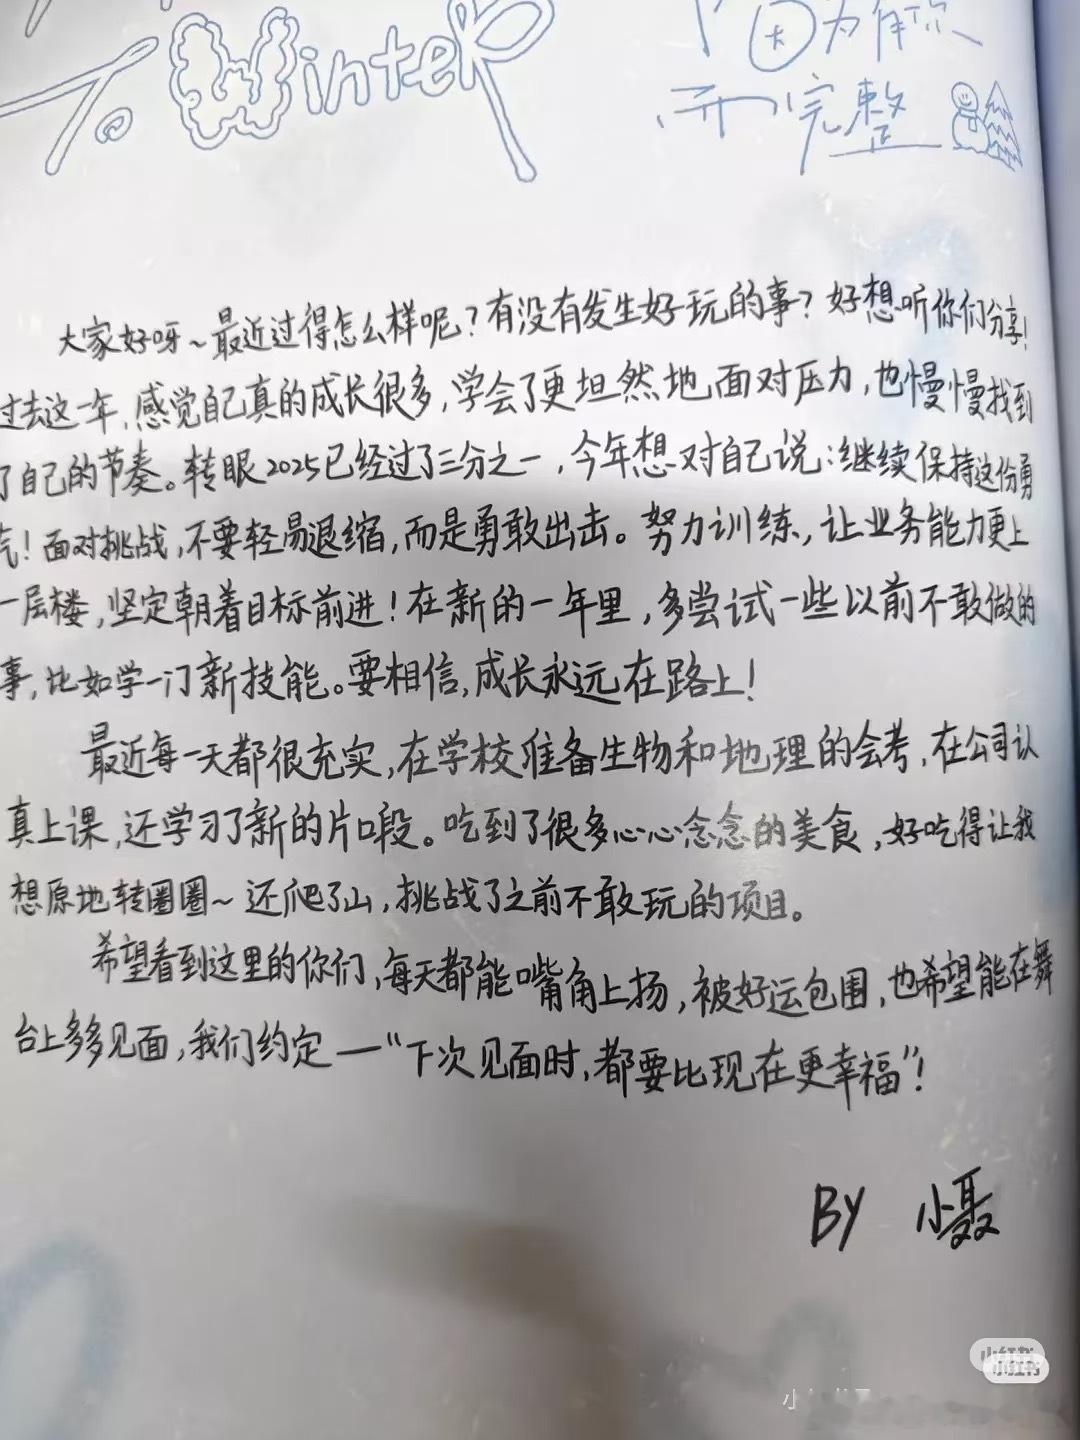 To Winter
「因为有你
而完整
大家好呀~最近过得怎么样呢?有没有发生好玩的事?好想听你们分享!
过去这一年,感觉自己真的成长很多,学会了更坦然地面对压力,也慢慢找到
了自己的节奏。转眼2025已经过了三分之一,今年想对自己说:继续保持这份勇
气!面对挑战,不要轻易退缩,而是勇敢出击。努力训练,让业务能力更上
一层楼,坚定朝着目标前进!在新的一年里,多尝试一些以前不敢做的
事,比如学一门新技能。要相信,成长永远在路上!
最近每一天都很充实,在学校准备生物和地理的会考,在公司认
真上课,还学习了新的片段。吃到了很多心心念念的美食,好吃得让我
想原地转圈圈~还爬了山,挑战了之前不敢玩的项目。
希望看到这里的你们,每天都能嘴角上扬,被好运包围,也希望能在舞
台上多多见面,我们约定—“下次见面时,都要比现在更幸福”!
BY 小聂
小红书
小红书